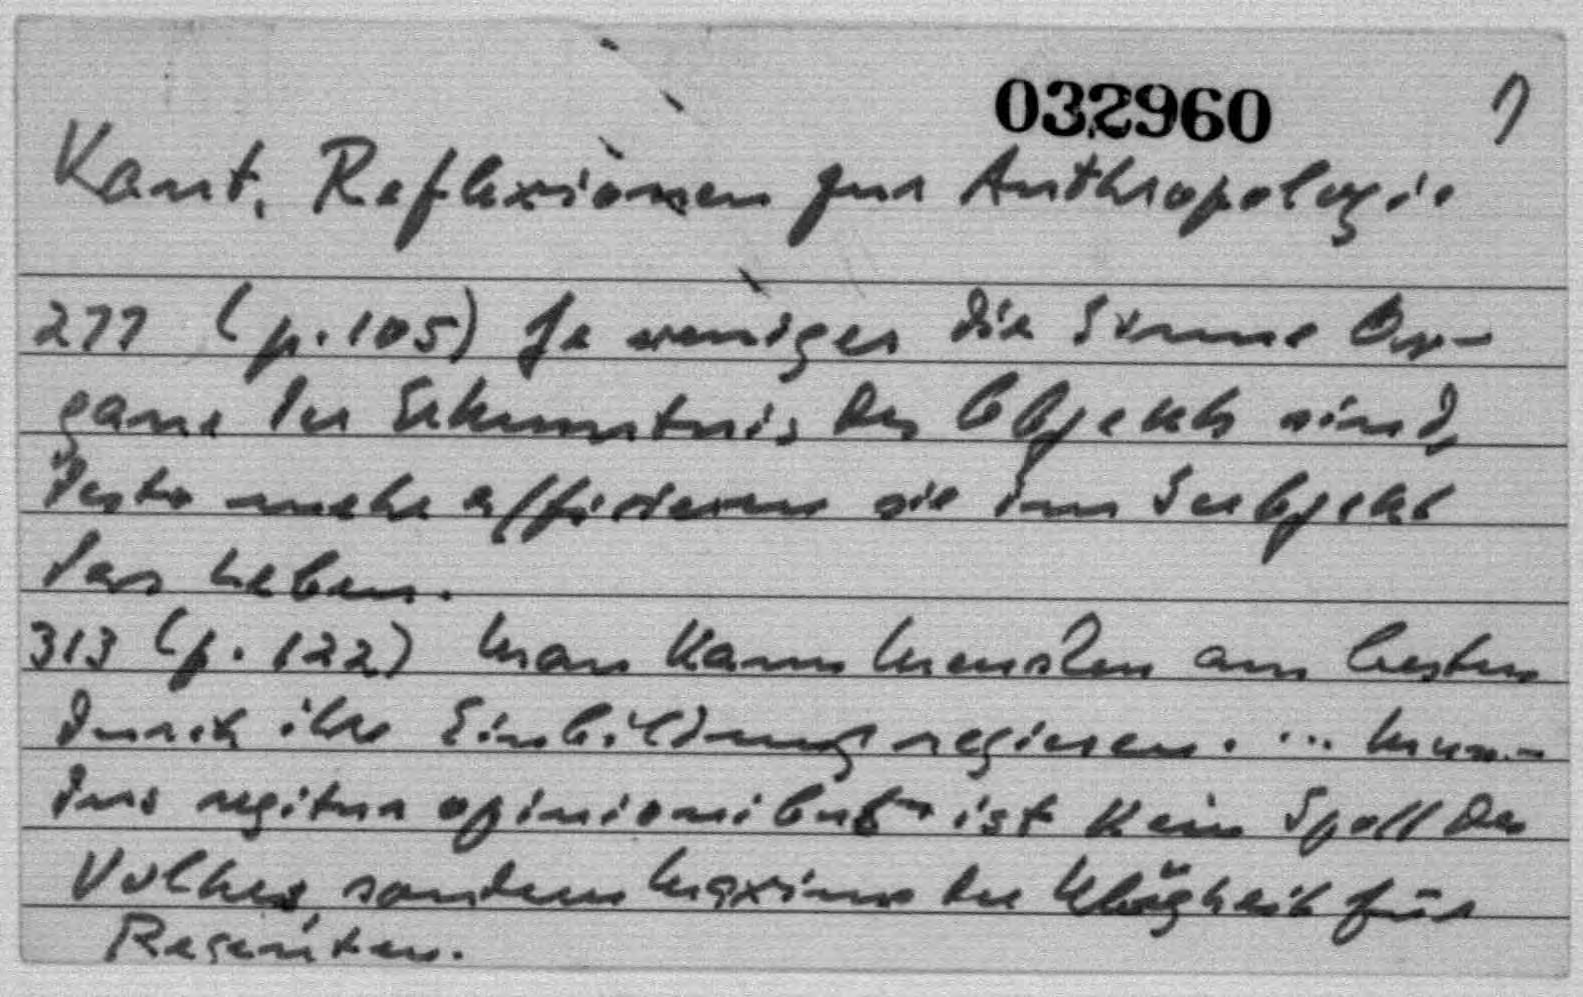 032960 1
Kant, Reflexionen zur Anthropologie
277 (p. 105) Je weniger die Sinne Or-
gane der Erkenntnis des Objekts sind,
desto mehr affizieren sie im Subjekt
das Leben.
313 (p. 122) Man kann Menschen am besten
durch ihre Einbildung regieren. ... mun-
dus regitur opinionibus ist kein Spott des
Volkes, sondern Maxime der Klugheit für
Regenten.